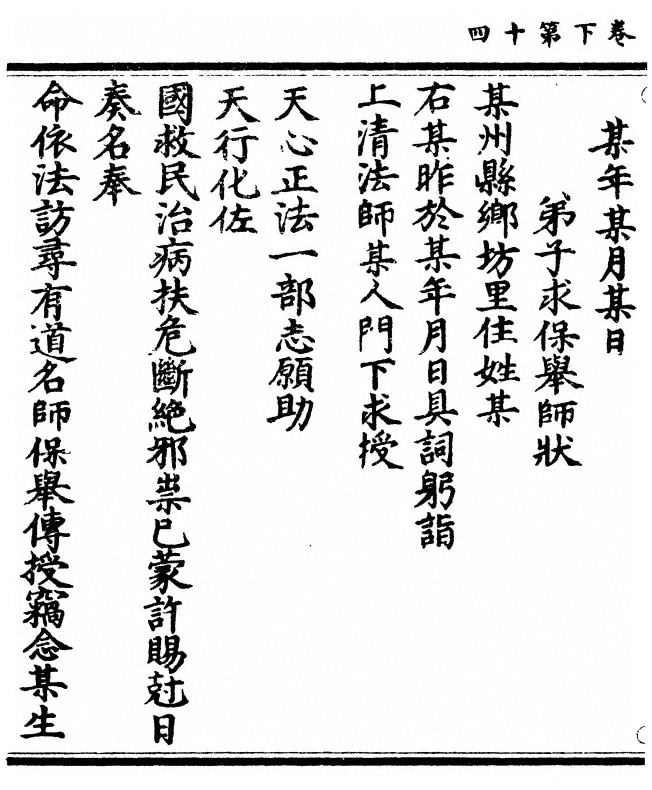 卷下第十四
某年某月某日
弟子求保舉師狀
某州縣鄉坊里住姓某
右某昨於某年月日具詞躬詣
上清法師某人門下求授
天心正法一部志願助
天行化佐
國救民治病扶危斷絶邪祟已蒙許賜尅日
奏名奉
命依法訪尋有道名師保舉傳授竊念某生